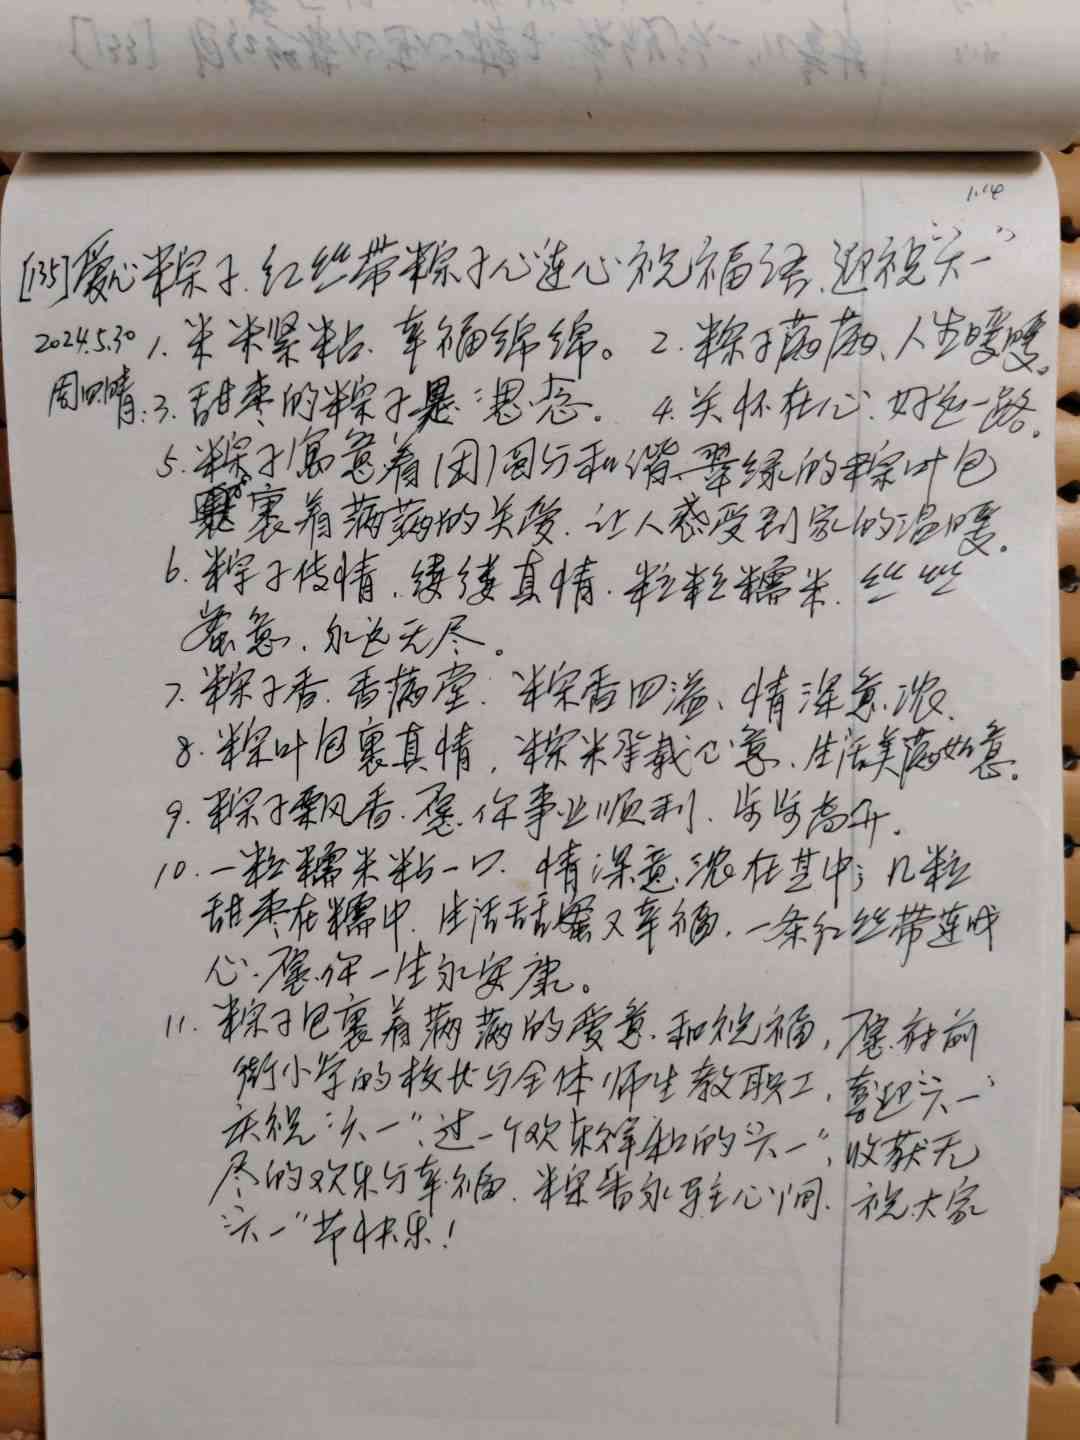 1.14
[135]爱心粽子.红丝带粽子心连心祝福语.迎祝"六一"
2024.5.30 1. 米米紧粘.幸福绵绵。 2. 粽子满满、人生暖暖。
周四晴:3. 甜枣的粽子是思念。 4. 关怀在心.好运一路。
5. 粽子寓意着团圆与和谐.翠绿的粽叶包
裹着满满的关爱.让人感受到家的温暖。
6. 粽子传情.缕缕真情.粒粒糯米.丝丝
蜜意.永远无尽。
7. 粽子香.香满堂.粽香四溢、情深意浓.
8. 粽叶包裹真情,粽米承载心意、生活美满如意。
9. 粽子飘香.愿你事业顺利.步步高升.
10. 一粒糯米粘一口.情深意浓在其中;几粒
甜枣在糯中.生活甜蜜又幸福.一条红丝带连成
心.愿你一生永安康。
11. 粽子包裹着满满的爱意.和祝福,愿府前
街小学的校长与全体师生教职工,喜迎"六一"
庆祝"六一".过一个欢乐祥和的"六一",收获无
尽的欢乐与幸福.粽香永驻心间.祝大家
"六一"节快乐!